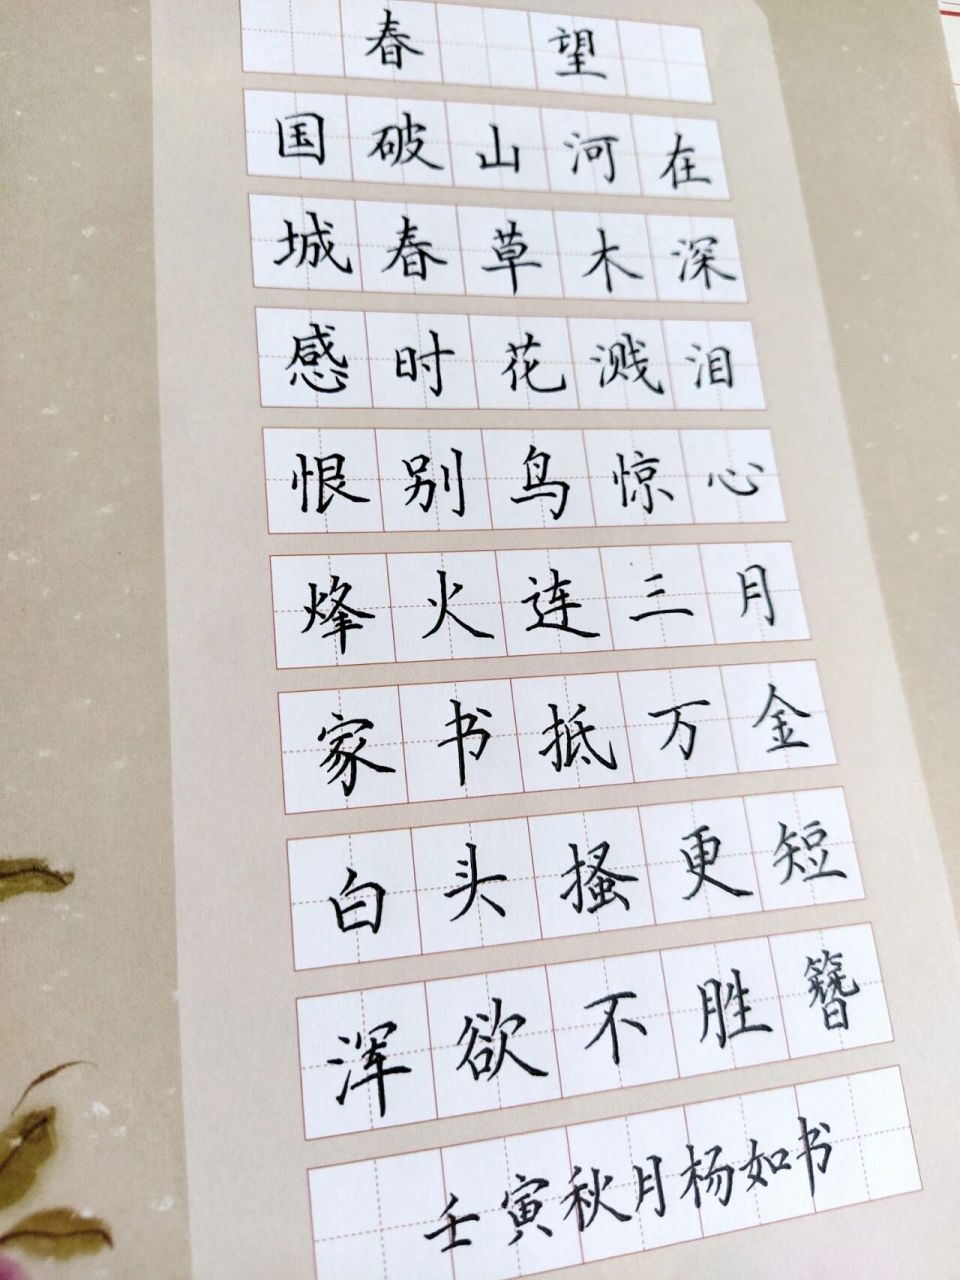 春望
国破山河在
城春草木深
感时花溅泪
恨别鸟惊心
烽火连三月
家书抵万金
白头搔更短
浑欲不胜簪
壬寅秋月杨如书